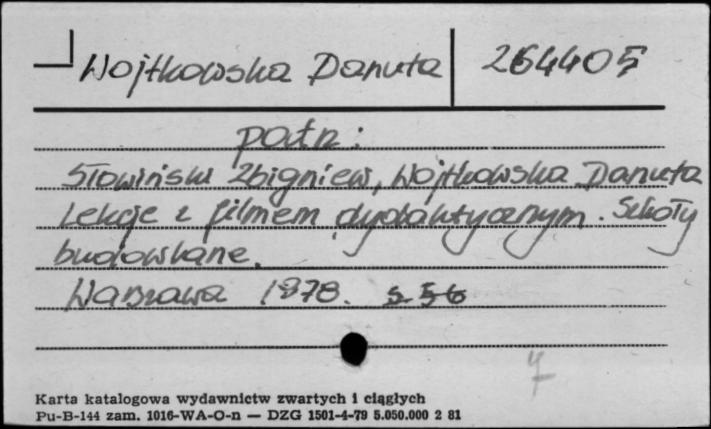 Wojtkowska Danuta 264405
patrz:
Słowiński Zbigniew, Wojtkowska Danuta
Lekcje z filmem dydaktycznym. Szkoły
budowlane.
Warszawa 1978. s. 56
4
Karta katalogowa wydawnictw zwartych i ciągłych
Pu-B-144 zam. 1016-WA-O-n — DZG 1501-4-79 5.050.000 2 81